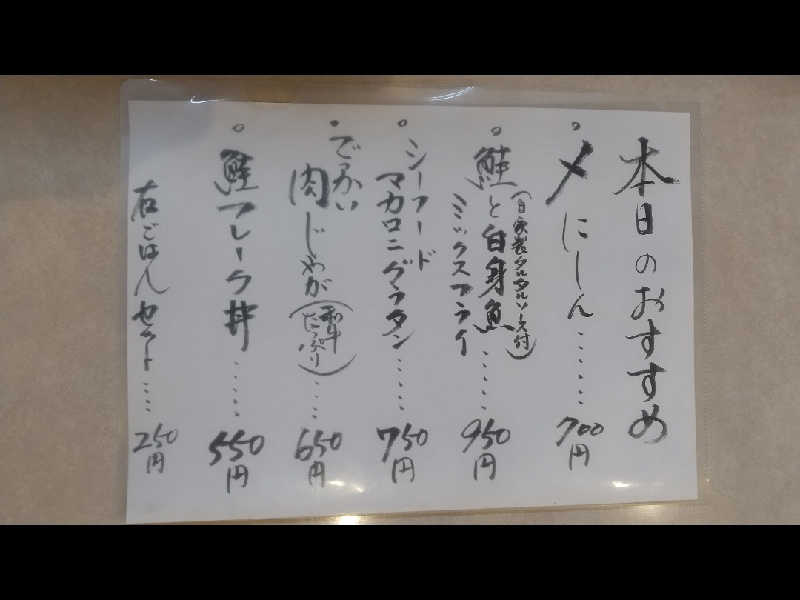 本日のおすすめ
〆にしん・・・・・・・700円
鮭と白身魚
ミックスフライ・・・・・950円
(自家製タルタルソース付)
シーフード
マカロニグラタン・・・・・750円
でっかい
肉じゃが・・・・650円
(和牛
たっぷり)
鮭フレーク丼・・・・・550円
右ごはんセット・・・・250円